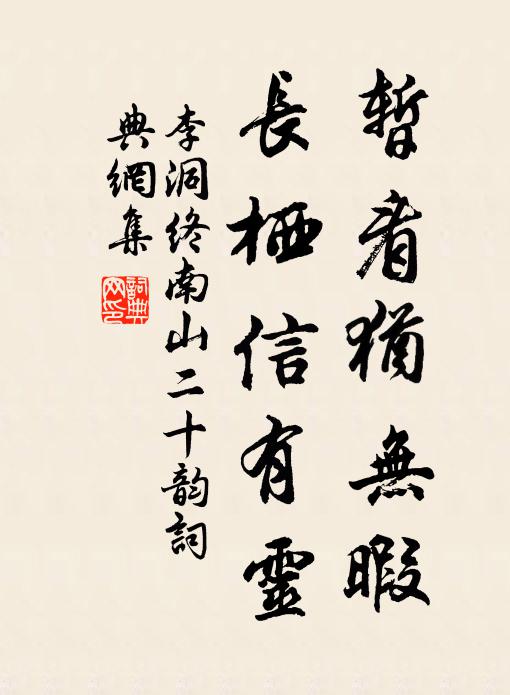 暫看猶無暇
長栖信有靈
李洞终南山二十韵詞
典網集
詞典网印